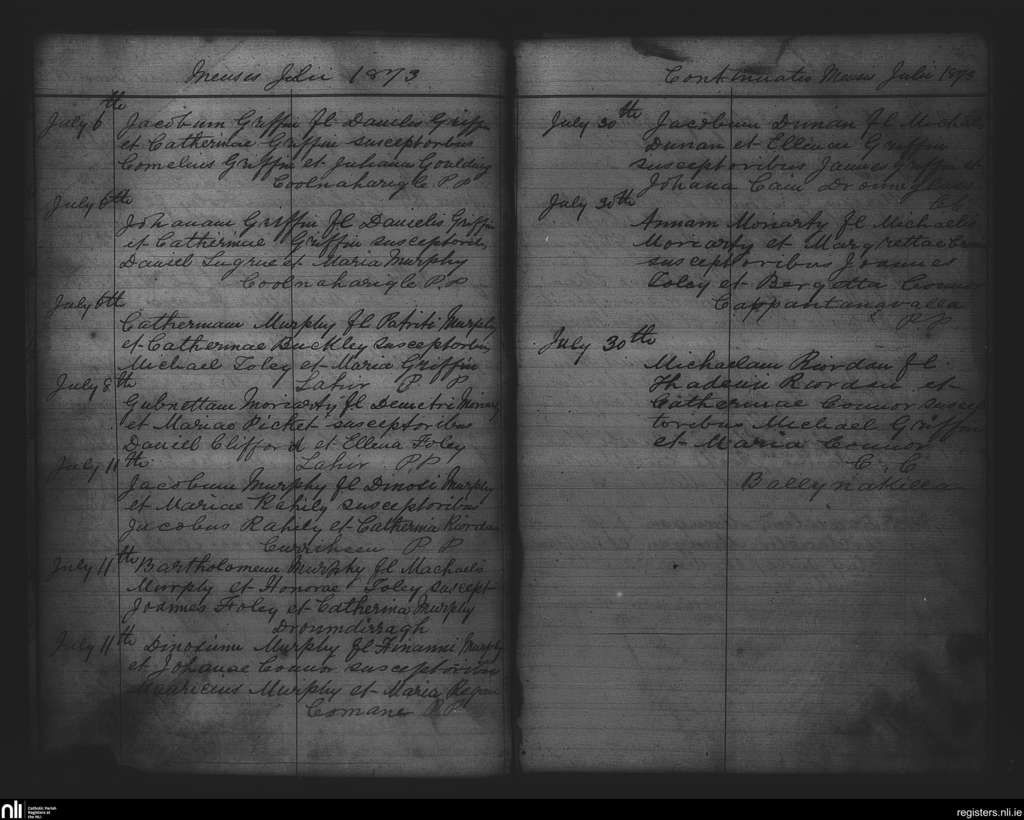 Mensis Julii 1873
July 6th Jacobum Griffin fl Danielis Griffin
et Catherinae Griffin susceptoribus
Cornelius Griffin et Juhana Goulding
Coolnaharigle P P
July 6th
Johanam Griffin fl Danielis Griffin
et Catherinae Griffin susceptoribus
Daniel Sugrue et Maria Murphy
Coolnaharigle P.P
July 6th
Catherinam Murphy fl Patriti Murphy
et Catherinae Buckley susceptoribus
Michael Foley et Maria Griffin
Lahir P P
July 8th
Gubnettam Moriarty fl Demetri Moriarty
et Mariae Picket susceptoribus
Daniel Clifford et Ellena Foley
Lahir P.P
July 11th
Jacobum Murphy fl Murphy
et Mariae Rahily susceptoribus
Jacobus Rahily et Catherina Riordan
P P
July 11th Bartholomeum Murphy fl Machaelis
Murphy et Honorae Foley suscept
Joannes Foley et Catherina Murphy
Droumdirragh
July 11th Murphy fl Murphy
et Johanae Connor susceptoribus
Mauricius Murphy et Maria Regan
Comane P P
Continuatio Mensis Julii 1873
July 30th Jacobum Dunan fl Michael
Dunan et Ellenae Griffin
susceptoribus James Griffin et
Johana Cain
July 30th
Annam Moriarty fl Michaelis
Moriarty et
susceptoribus Joannes
Foley et Connor
P P
July 30th
Michaelam Riordan fl
Riordan et
Catherinae Connor suscep
toribus Michael Griffin
et Maria Connor
C. C
nli
Catholic Parish
Registers at
the NLI
registers.nli.ie